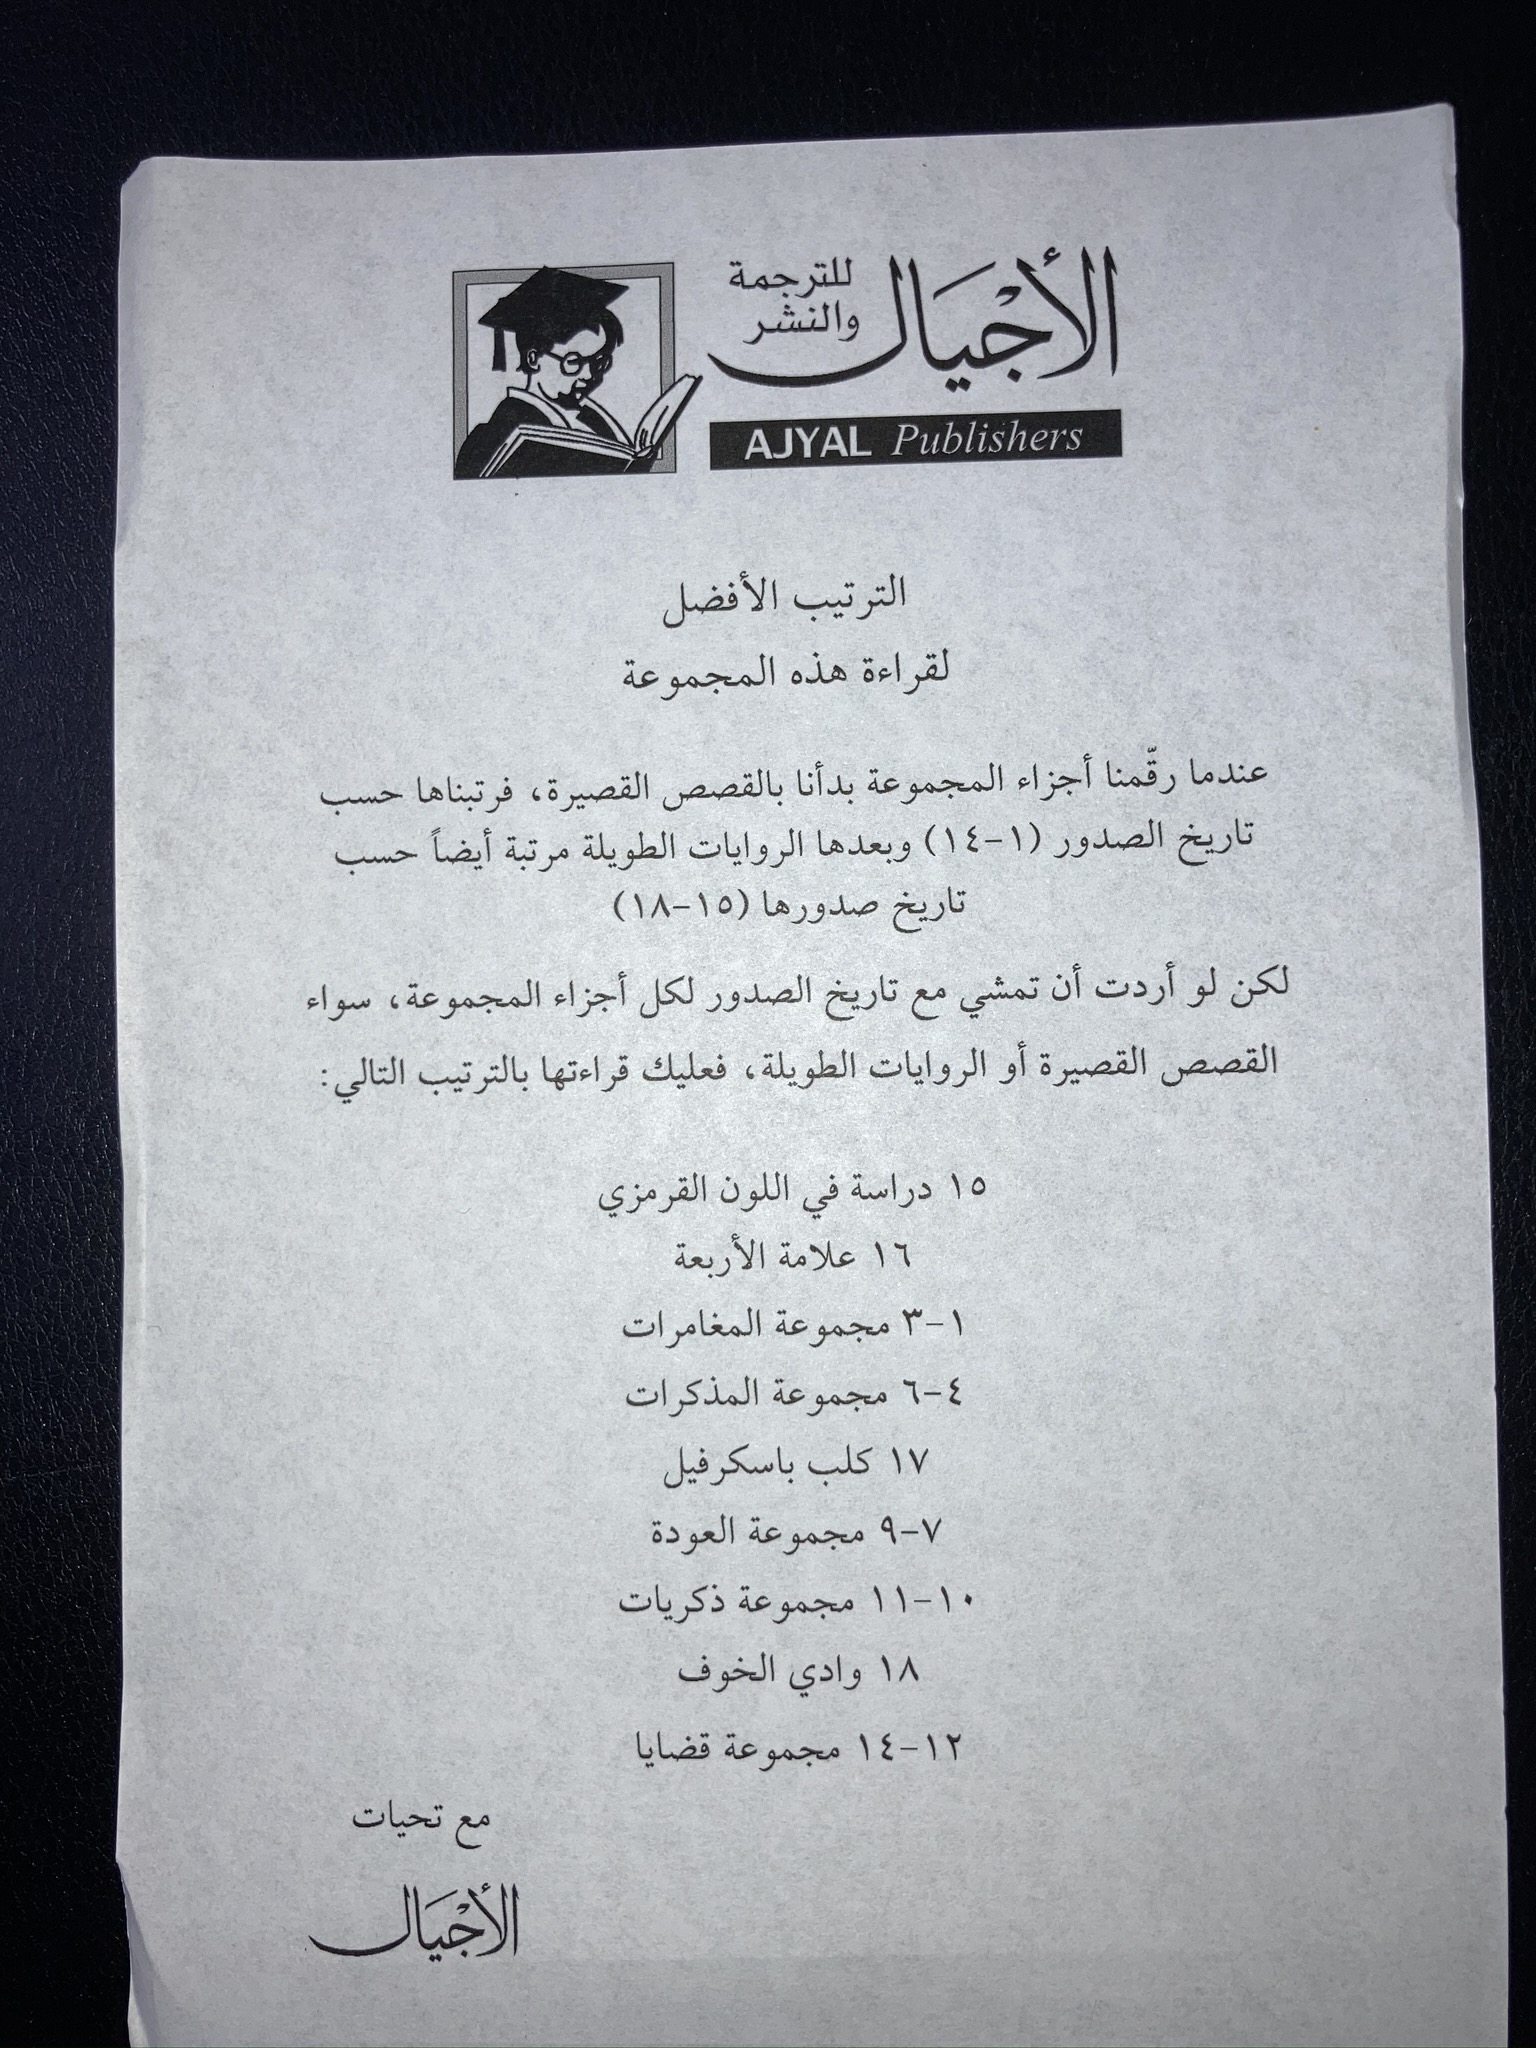 الأجيال
للترجمة
والنشر
AJYAL Publishers
الترتيب الأفضل
لقراءة هذه المجموعة
عندما رقّمنا أجزاء المجموعة بدأنا بالقصص القصيرة، فرتبناها حسب
تاريخ الصدور (١-١٤) وبعدها الروايات الطويلة مرتبة أيضاً حسب
تاريخ صدورها (١٥-١٨)
لكن لو أردت أن تمشي مع تاريخ الصدور لكل أجزاء المجموعة، سواء
القصص القصيرة أو الروايات الطويلة، فعليك قراءتها بالترتيب التالي:
١٥ دراسة في اللون القرمزي
١٦ علامة الأربعة
١-٣ مجموعة المغامرات
٤-٦ مجموعة المذكرات
١٧ كلب باسكرفيل
٧-٩ مجموعة العودة
١٠-١١ مجموعة ذكريات
١٨ وادي الخوف
١٢-١٤ مجموعة قضايا
مع تحيات
الأجيال